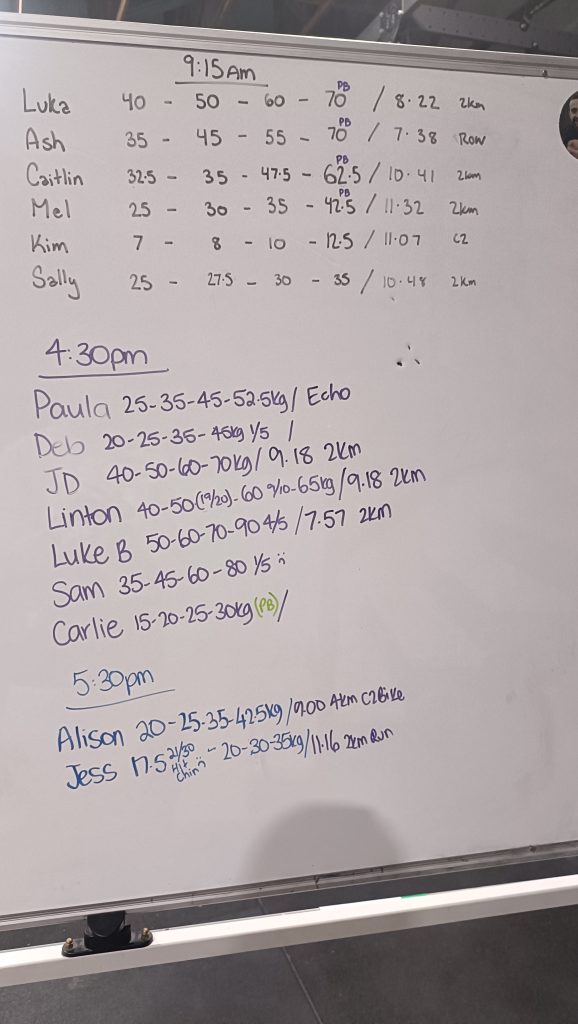 9:15am
Luka 40 - 50 - 60 - 70 PB / 8.22 2km
Ash 35 - 45 - 55 - 70 PB / 7.38 Row
Caitlin 32.5 - 35 - 47.5 - 62.5 PB / 10.41 2km
Mel 25 - 30 - 35 - 42.5 PB / 11.32 2km
Kim 7 - 8 - 10 - 12.5 / 11.07 C2
Sally 25 - 27.5 - 30 - 35 / 10.48 2km
4:30pm
Paula 25-35-45-52.5kg/ Echo
Deb 20-25-35-45kg 1/5 /
JD 40-50-60-70kg/ 9.18 2km
Linton 40-50(19/20)-60 9/10-65kg/9.18 2km
Luke B 50-60-70-90 4/5 /7.57 2km
Sam 35-45-60-80 1/5 :(
Carlie 15-20-25-30kg(PB)/
5:30pm
Alison 20-25-35-42.5kg/9.00 4km C2Bike
Jess 17.5 21/30 Hit Chin :( - 20-30-35kg/11.16 2km Run